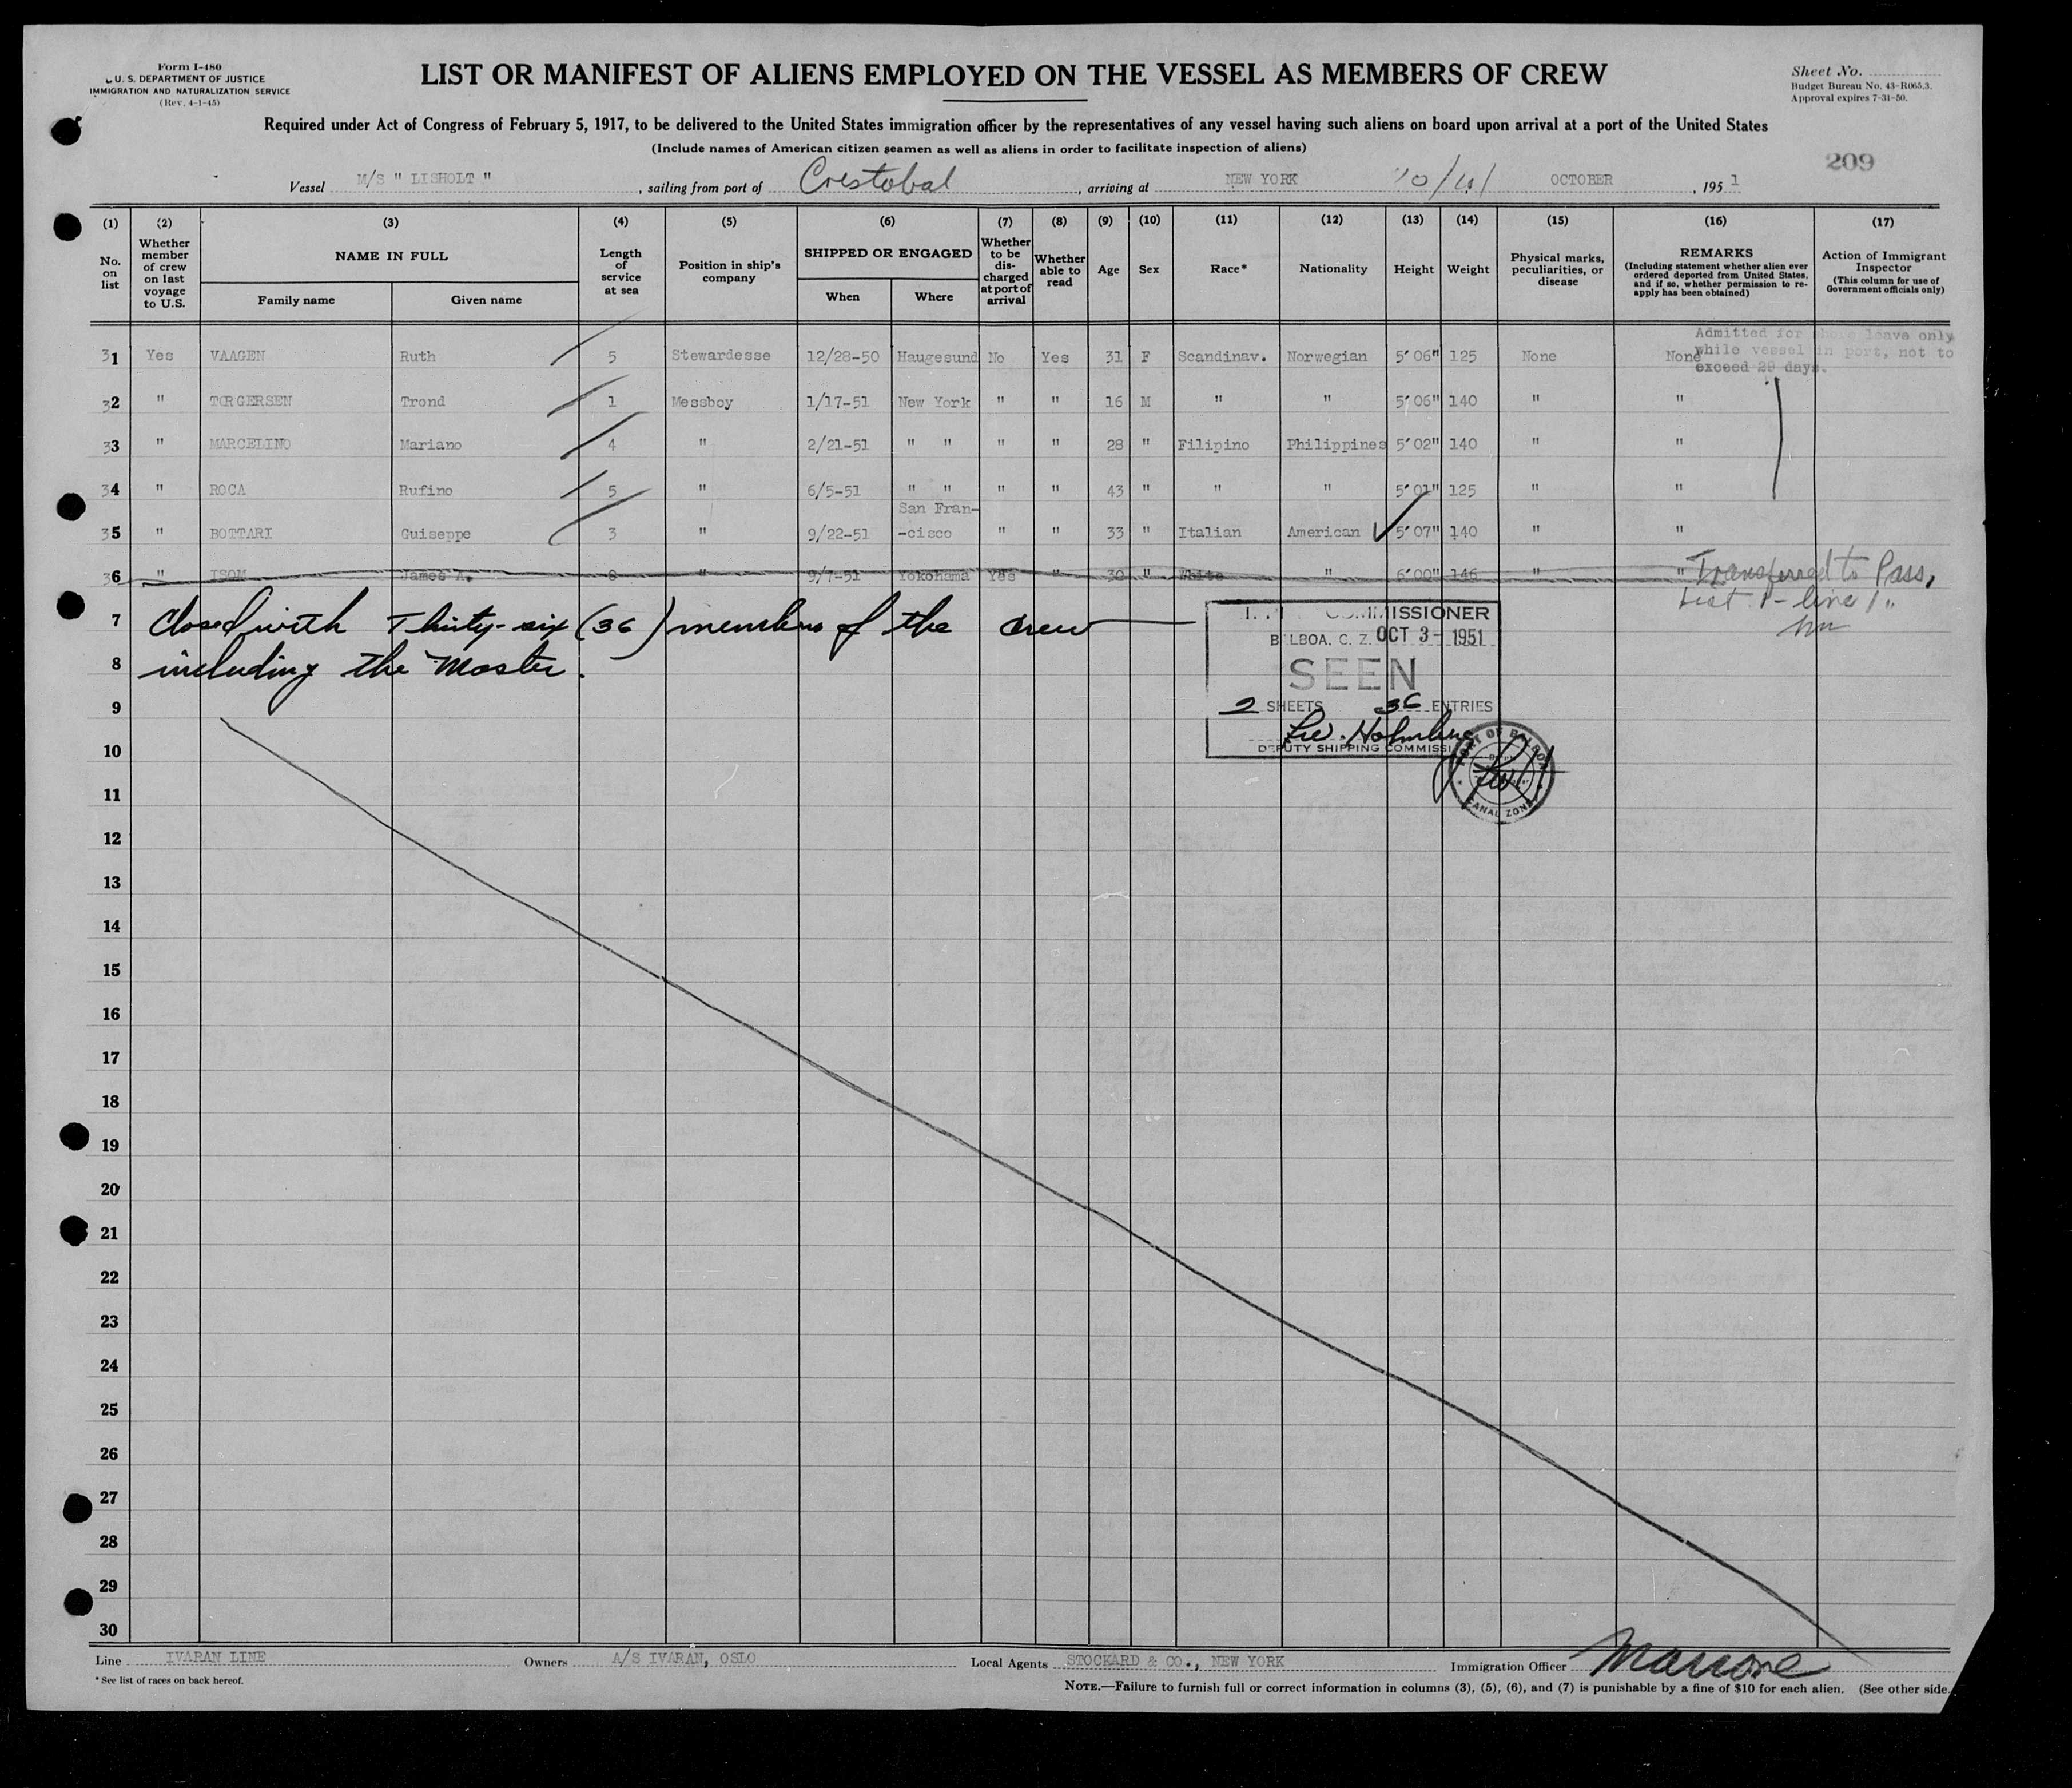 Form I-480
U. S. DEPARTMENT OF JUSTICE
IMMIGRATION AND NATURALIZATION SERVICE
(Rev. 4-1-45)
LIST OR MANIFEST OF ALIENS EMPLOYED ON THE VESSEL AS MEMBERS OF CREW
Sheet No.
Budget Bureau No. 43-R065.3.
Approval expires 7-31-50.
Required under Act of Congress of February 5, 1917, to be delivered to the United States immigration officer by the representatives of any vessel having such aliens on board upon arrival at a port of the United States
(Include names of American citizen seamen as well as aliens in order to facilitate inspection of aliens)
209
Vessel M/S " LISHOLT " , sailing from port of Crestobal , arriving at NEW YORK OCTOBER , 195 1
(1) (2) (3) (4) (5) (6) (7) (8) (9) (10) (11) (12) (13) (14) (15) (16) (17)
No. on list
Whether member of crew on last voyage to U.S.
NAME IN FULL
Family name Given name
Length of service at sea
Position in ship's company
SHIPPED OR ENGAGED
When Where
Whether to be discharged at port of arrival
Whether able to read
Age Sex Race* Nationality Height Weight
Physical marks, peculiarities, or disease
REMARKS
(Including statement whether alien ever ordered deported from United States, and if so, whether permission to reapply has been obtained)
Action of Immigrant Inspector
(This column for use of Government officials only)
Admitted for shore leave only
while vessel in port, not to
exceed 29 days.
31 Yes VAAGEN Ruth 5 Stewardesse 12/28-50 Haugesund No Yes 31 F Scandinav. Norwegian 5'06" 125 None None
32 " TORGERSEN Trond 1 Messboy 1/17-51 New York " " 16 M " " 5'06" 140 " "
33 " MARCELINO Mariano 4 " 2/21-51 " " " " 28 " Filipino Philippines 5'02" 140 " "
34 " ROCA Rufino 5 " 6/5-51 " " " " 43 " " " 5'01" 125 " "
35 " BOTTARI Guiseppe 3 " 9/22-51 San Fran-
-cisco " " 33 " Italian American 5'07" 140 " "
36 " ISOM James A. 8 " 9/7-51 Yokohama Yes " 30 " White " 6'00" 146 " "
Transferred to Pass,
List P- line 1
7 Closed with Thirty-six (36) members of the crew
8 including the Master.
COMMISSIONER
BALBOA, C. Z. OCT 3 - 1951
SEEN
2 SHEETS 36 ENTRIES
DEPUTY SHIPPING COMMISSI
PORT OF BALBOA
CANAL ZONE
9
10
11
12
13
14
15
16
17
18
19
20
21
22
23
24
25
26
27
28
29
30
Line IVARAN LINE Owners A/S IVARAN, OSLO Local Agents STOCKARD & CO., NEW YORK Immigration Officer
* See list of races on back hereof.
NOTE.—Failure to furnish full or correct information in columns (3), (5), (6), and (7) is punishable by a fine of $10 for each alien. (See other side.